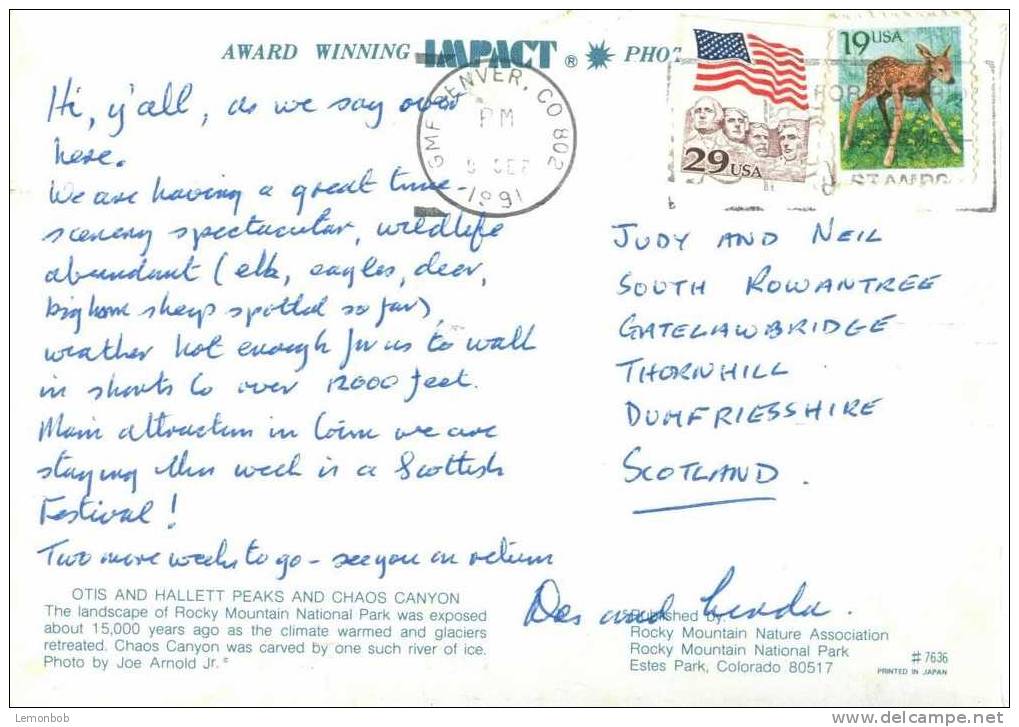 AWARD WINNING IMPACT ® PHOT
GMF DENVER, CO 802
PM
1991
29 USA
19 USA
Hi, y'all, as we say over
here.
We are having a great time -
scenery spectacular, wildlife
abundant (elk, eagles, deer,
bighorn sheep spotted so far),
weather hot enough for us to walk
in shorts to over 12000 feet.
Main attraction in town we are
staying this week is a Scottish
Festival!
Two more weeks to go - see you on return
Des and Linda.
JUDY AND NEIL
SOUTH ROWANTREE
GATELAWBRIDGE
THORNHILL
DUMFRIESSHIRE
SCOTLAND.
OTIS AND HALLETT PEAKS AND CHAOS CANYON
The landscape of Rocky Mountain National Park was exposed
about 15,000 years ago as the climate warmed and glaciers
retreated. Chaos Canyon was carved by one such river of ice.
Photo by Joe Arnold Jr.©
Published by:
Rocky Mountain Nature Association
Rocky Mountain National Park
Estes Park, Colorado 80517
#7636
PRINTED IN JAPAN
Lemonbob
www.delcampe.net